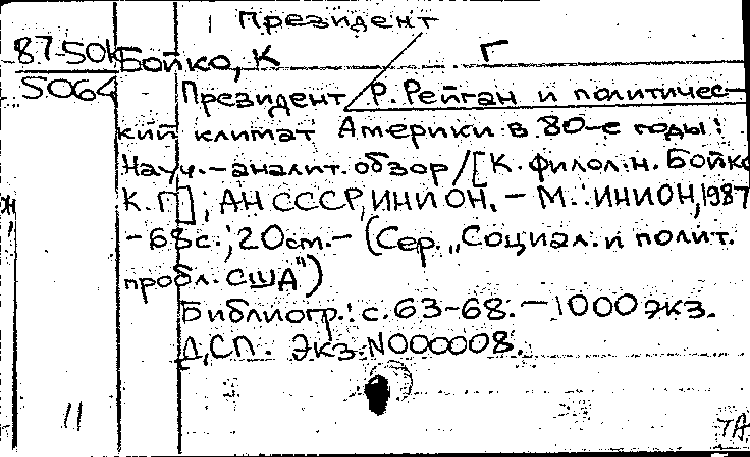 Президент
87-50к Бойко, К Г
5064 Президент Р. Рейган и политичес-
кий климат Америки в 80-е годы:
Науч.-аналит. обзор /[К. филол. н. Бойко
К. Г]; АН СССР, ИНИОН. – М.: ИНИОН, 1987
- 68с.; 20см. – (Сер. "Социал. и полит.
пробл. США")
Библиогр.: с. 63-68. – 1000 экз.
ДСП. Экз. N000008.
11
ТА